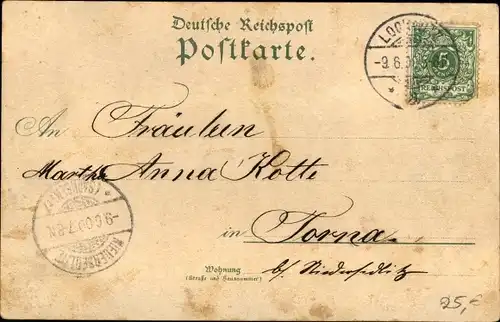 Deutsche Reichspost
Postkarte.
-9.6.
5
REICHSPOST
An Fräulein
Martha Anna Kotte
in Torna
b/ Niedersedlitz
Wohnung
(Straße und Hausnummer)
(SACHSEN)
-9.6.00.7-8N.
NIEDERSEDLITZ
25,-